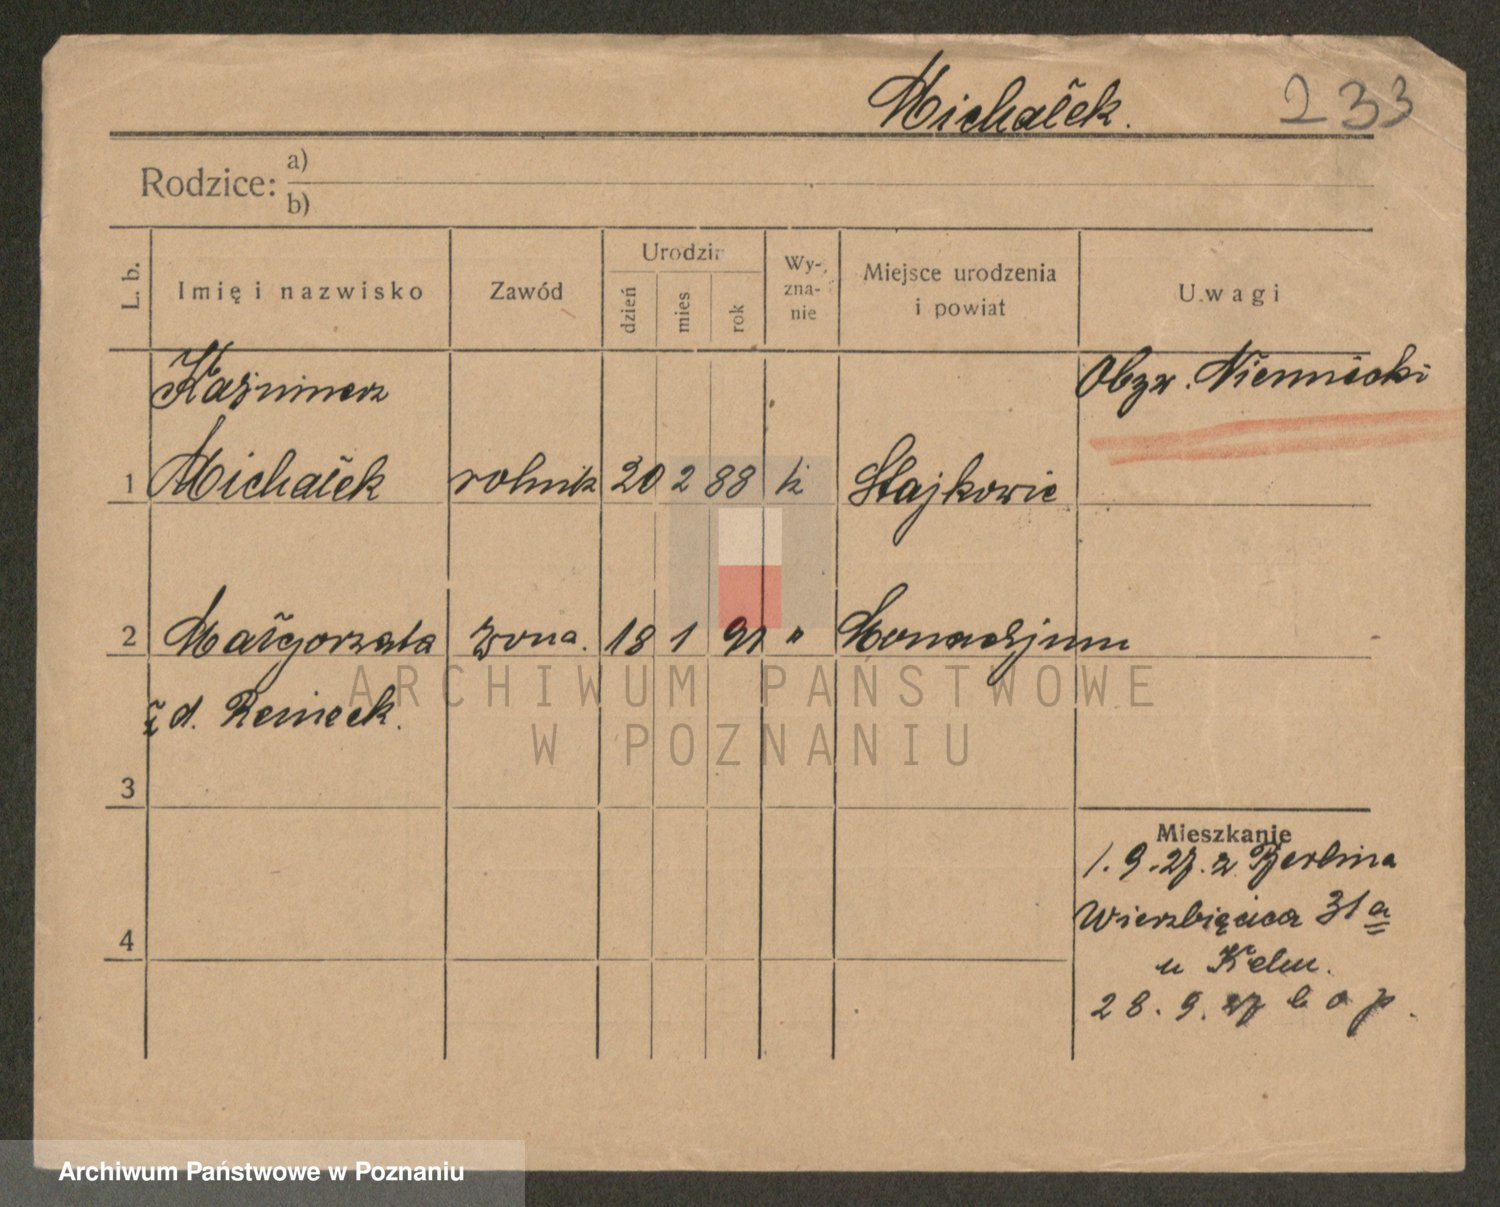 Michałek. 233
Rodzice: a)
b)
L. b. Imię i nazwisko Zawód Urodzin dzień mies rok Wyznanie Miejsce urodzenia i powiat Uwagi
Kaźmierz Obyw. Niemiecki
1 Michałek rolnik 20 2 88 k Stajkowie
2 Małgorzata żona. 18 1 91 " Monachjum
z d. Reineck.
3
Mieszkanie
1.9.27. z Berlina
Wierzbięcica 31a
4
u Kelm.
28.9.27 b o p.
ARCHIWUM PAŃSTWOWE
W POZNANIU
Archiwum Państwowe w Poznaniu